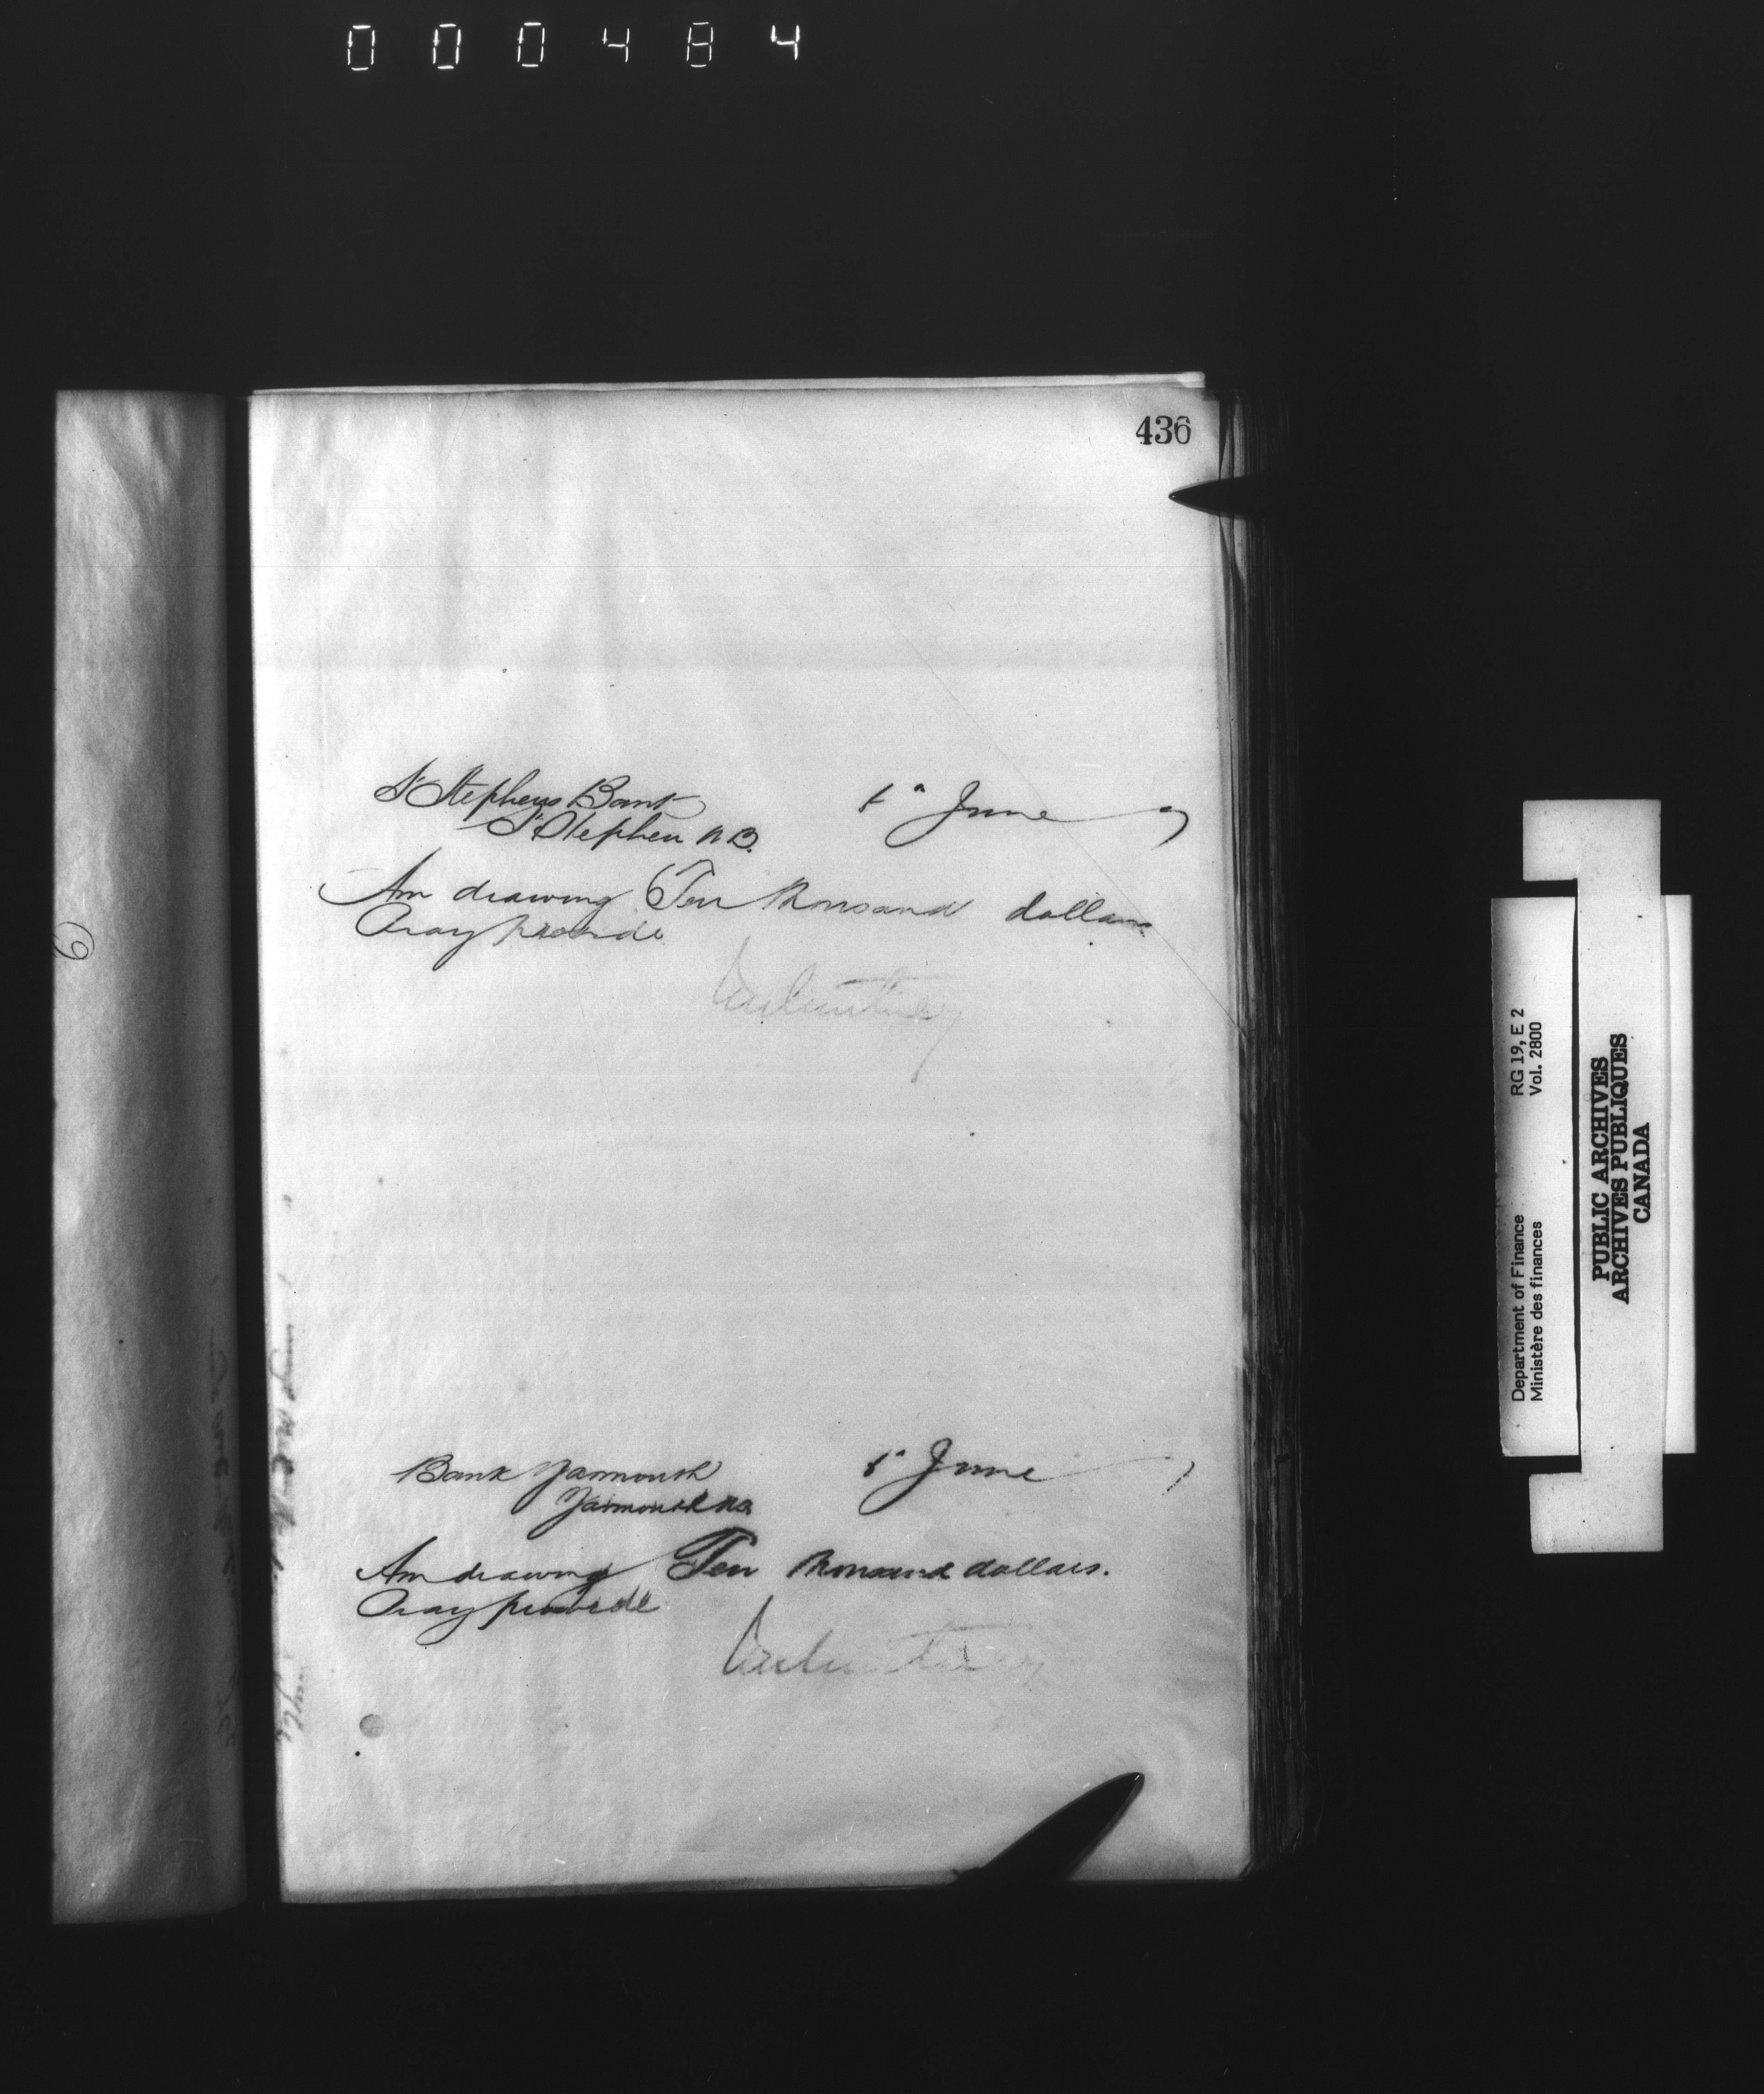 000484
436
St Stephens Bank
St Stephen N.B.
June
Am drawing Ten thousand dollars
Pray provide
Bank Yarmouth
Yarmouth NS
June
Am drawing Ten thousand dollars.
Pray provide
Department of Finance RG 19, E 2
Ministère des finances Vol. 2800
PUBLIC ARCHIVES
ARCHIVES PUBLIQUES
CANADA